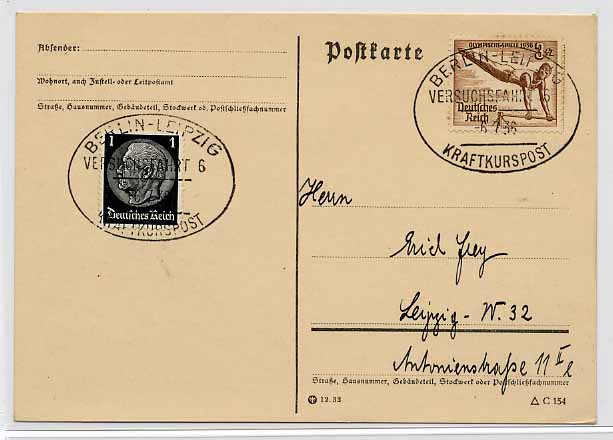 Absender:
Wohnort, auch Zustell- oder Leitpostamt
Straße, Hausnummer, Gebäudeteil, Stockwerk od. Postschließfachnummer
BERLIN-LEIPZIG
VERSUCHSFAHRT 6
KRAFTKURSPOST
1 1
Deutsches Reich
Postkarte
OLYMPISCHE SPIELE 1936
3
Deutsches
Reich
BERLIN-LEIPZIG
VERSUCHSFAHRT 6
KRAFTKURSPOST
Herrn
Erich Frey
Leipzig - W. 32
Antonienstraße 11 II l
Straße, Hausnummer, Gebäudeteil, Stockwerk oder Postschließfachnummer
12. 33
C 154